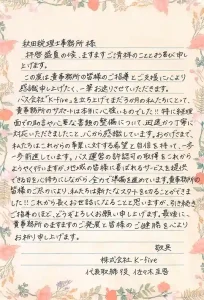 秋田税理士事務所 様
拝啓 盛夏の候、ますますご清祥のこととお慶び申し
上げます。
この度は貴事務所の皆様のご指導とご支援により
感謝申し上げたく、一筆お送りさせていただきます。
バス会社「K-five」を立ち上げてまだ1か月の私たちにとって、
貴事務所のサポートは本当に心強いものでした!!特に経理
面での助言や必要な書類の整備について、迅速かつ丁寧に
対応いただきましたこと、心から感謝しています。おかげさまで、
私たちはこれからの事業に対する希望と自信を持って、一歩
一歩前進しています。バス運営の許認可の取得をこれから
とりやく行いますが、地域の皆様に喜ばれるサービスを提供
できる日を心待ちにしながら、全力で準備を進めています。貴事務所の
皆様のご尽力により、私たちは新たなスタートをきることができま
した!!これから長くお世話になることと思いますが、引き続き
ご指導のほど、どうぞよろしくお願い申し上げます。最後に、
貴事務所のますますのご発展と皆様のご健勝を心より
お祈り申し上げます。
敬具
株式会社 K-five
代表取締役 佐々木